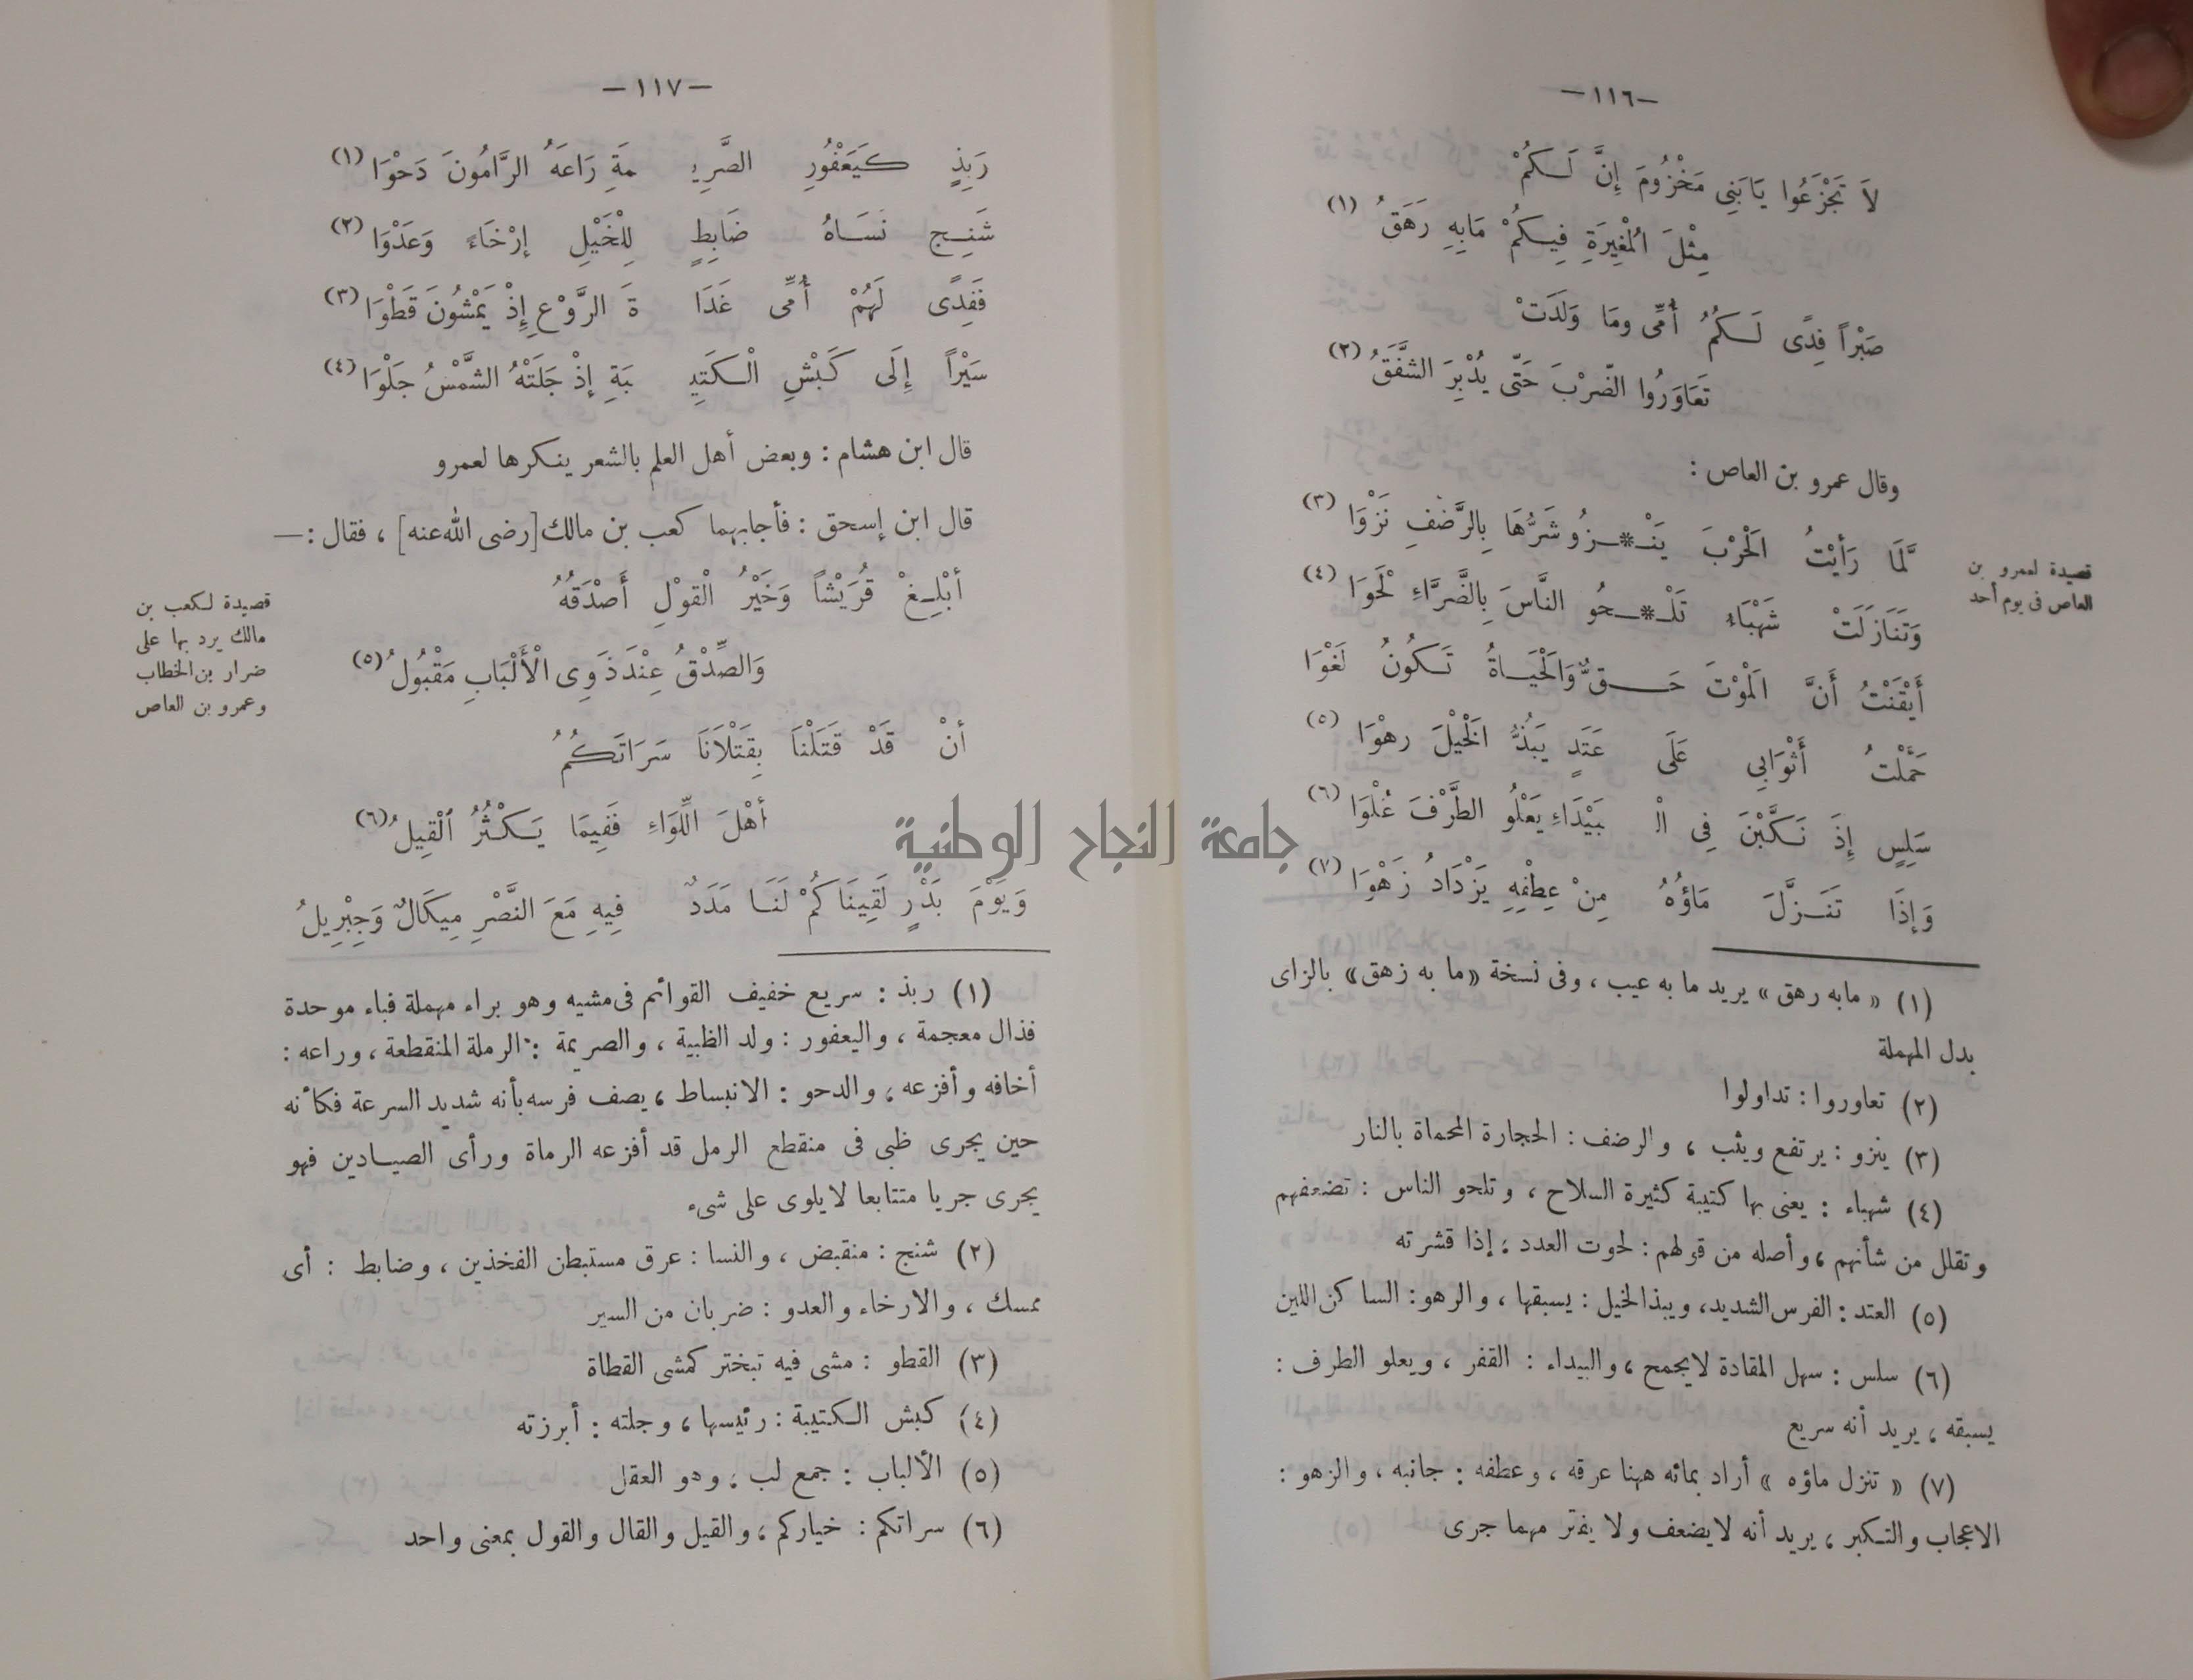 —١١٦—
لاَ تَجْزَعُوا يَا بَنِي مَخْزُومَ إِنَّ لَـكُمْ
مِثْلَ الْمُغِيرَةِ فِيـكُمْ مَابِهِ رَهَقُ (١)
صَبْراً فِدًى لَـكُمُ أُمِّى ومَا وَلَدَتْ
تَعَاوَرُوا الضَّرْبَ حَتَّى يُدْبِرَ الشَّفَقُ (٢)
وقال عمرو بن العاص :
لَمَّا رَأَيْتُ الْحَرْبَ يَنْـ*ـزُو شَرُّهَا بِالرَّضْفِ نَزْوَا (٣)
قصيدة لعمرو بن
العاص فى يوم أحد
وَتَنَازَلَتْ شَهْبَاءُ تَلْـ*ـحُو النَّاسَ بِالضَّرَّاءِ لَحْوَا (٤)
أَيْقَنْتُ أَنَّ الْمَوْتَ حَـــقٌّ وَالْحَيَـاةُ تَـكُونُ لَغْوَا
حَمَّلْتُ أَثْوَابِي عَلَى عَتَدٍ يَبُذُّ الْخَيْلَ رهْوَا (٥)
سَلِسٍ إِذَ نَـكَّبْنَ فِى الْـ بَيْدَاءِ يَعْلُو الطَّرْفَ غُلْوَا (٦)
وَإِذَا تَنَـزَّلَ مَاؤُهُ مِنْ عِطْفِهِ يَزْدَادُ زَهْوَا (٧)
(١) « مابه رهق » يريد ما به عيب ، وفى نسخة « ما به زهق » بالزاى
بدل المهملة
(٢) تعاوروا : تداولوا
(٣) ينزو : يرتفع ويثب ، والرضف : الحجارة المحماة بالنار
(٤) شهباء : يعنى بها كتيبة كثيرة السلاح ، وتلحو الناس : تضعفهم
وتقلل من شأنهم ، وأصله من قولهم : لحوت العدد ، إذا قشرته
(٥) العتد : الفرس الشديد، ويبذ الخيل : يسبقها ، والرهو : الساكن اللين
(٦) سلس : سهل المقادة لايجمح ، والبيداء : القفر ، ويعلو الطرف :
يسبقه ، يريد أنه سريع
(٧) « تنزل ماؤه » أراد بمائه ههنا عرقه ، وعطفه : جانبه ، والزهو :
الاعجاب والتـكبر ، يريد أنه لايضعف ولا يفتر مهما جرى
—١١٧—
رَبِذٍ كَيَعْفُورِ الصَّرِيـ ـمَةِ رَاعَهُ الرَّامُونَ دَحْوَا (١)
شَنِـجٍ نَسَـاهُ ضَابِطٍ لِلْخَيْلِ إِرْخَاءً وَعَدْوَا (٢)
فَفِدًى لَهُمْ أُمِّى غَدَا ةَ الرَّوْعِ إِذْ يَمْشُونَ قَطْوَا (٣)
سَيْراً إِلَى كَبْشِ الْـكَتِيـ ـبَةِ إِذْ جَلَتْهُ الشَّمْسُ جَلْوَا (٤)
قال ابن هشام : وبعض أهل العلم بالشعر ينـكرها لعمرو
قال ابن إسحق : فأجابهما كعب بن مالك [رضى الله عنه] ، فقال : —
أَبْلِـغْ قُرَيْشاً وَخَيْرُ الْقوْلِ أَصْدَقُهُ
قصيدة لـكعب بن
مالك يرد بها على
ضرار بن الخطاب
وعمرو بن العاص
وَالصِّدْقُ عِنْدَ ذَوِى الْأَلْبَابِ مَقْبُولُ (٥)
أنْ قَدْ قَتَلْناَ بِقَتْلاَنَا سَرَاتَـكُمُ
أهْلَ اللِّوَاءِ فَفِيمَا يَـكْثُرُ الْقِيلُ (٦)
وَيَوْمَ بَدْرٍ لَقِينَاكُمْ لَنَـا مَدَدٌ فِيهِ مَعَ النَّصْرِ مِيكَالٌ وَجِبْرِيلُ
(١) ربذ : سريع خفيف القوائم فى مشيه وهو براء مهملة فباء موحدة
فذال معجمة ، واليعفور : ولد الظبية ، والصريمة : الرملة المنقطعة ، وراعه :
أخافه وأفزعه ، والدحو : الانبساط ، يصف فرسه بأنه شديد السرعة فكأنه
حين يجرى ظبى فى منقطع الرمل قد أفزعه الرماة ورأى الصيـادين فهو
يجرى جريا متتابعا لايلوى على شىء
(٢) شنج : منقبض ، والنسا : عرق مستبطن الفخذين ، وضابط : أى
ممسك ، والارخاء والعدو : ضربان من السير
(٣) القطو : مشى فيه تبختر كمشى القطاة
(٤) كبش الـكتيبة : رئيسها ، وجلته : أبرزته
(٥) الألباب : جمع لب ، وهو العقل
(٦) سراتكم : خياركم ، والقيل والقال والقول بمعنى واحد
جامعة النجاح الوطنية